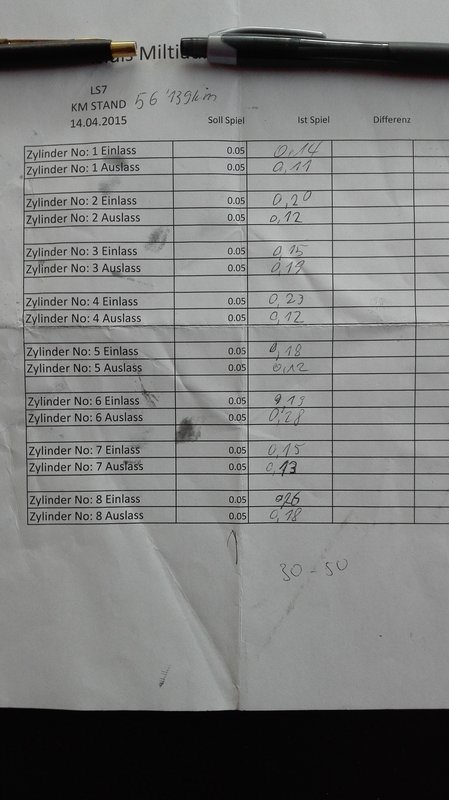 LS7
KM STAND 56'139km
14.04.2015 Soll Spiel Ist Spiel Differenz
Zylinder No: 1 Einlass 0.05 0,14
Zylinder No: 1 Auslass 0.05 0,11
Zylinder No: 2 Einlass 0.05 0,20
Zylinder No: 2 Auslass 0.05 0,12
Zylinder No: 3 Einlass 0.05 0,15
Zylinder No: 3 Auslass 0.05 0,19
Zylinder No: 4 Einlass 0.05 0,23
Zylinder No: 4 Auslass 0.05 0,12
Zylinder No: 5 Einlass 0.05 0,18
Zylinder No: 5 Auslass 0.05 0,12
Zylinder No: 6 Einlass 0.05 0,19
Zylinder No: 6 Auslass 0.05 0,28
Zylinder No: 7 Einlass 0.05 0,15
Zylinder No: 7 Auslass 0.05 0,13
Zylinder No: 8 Einlass 0.05 0,26
Zylinder No: 8 Auslass 0.05 0,18
30 - 50